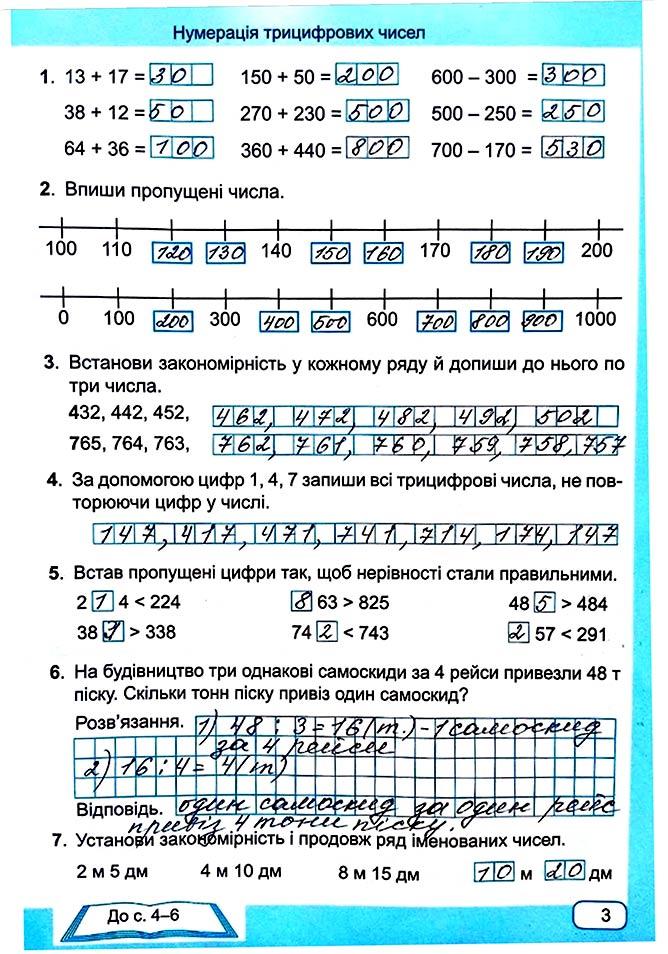 Нумерація трицифрових чисел
1. 13 + 17 = 30 150 + 50 = 200 600 – 300 = 300
38 + 12 = 50 270 + 230 = 500 500 – 250 = 250
64 + 36 = 100 360 + 440 = 800 700 – 170 = 530
2. Впиши пропущені числа.
100 110 120 130 140 150 160 170 180 190 200
0 100 200 300 400 500 600 700 800 900 1000
3. Встанови закономірність у кожному ряду й допиши до нього по
три числа.
432, 442, 452, 462, 472, 482, 492, 502
765, 764, 763, 762, 761, 760, 759, 758, 757
4. За допомогою цифр 1, 4, 7 запиши всі трицифрові числа, не пов-
торюючи цифр у числі.
147, 417, 471, 741, 714, 174, 147
5. Встав пропущені цифри так, щоб нерівності стали правильними.
2 1 4 < 224 8 63 > 825 48 5 > 484
38 1 > 338 74 2 < 743 2 57 < 291
6. На будівництво три однакові самоскиди за 4 рейси привезли 48 т
піску. Скільки тонн піску привіз один самоскид?
Розв'язання. 1) 48 : 3 = 16 (т.) - 1 самоскид
за 4 рейси
2) 16 : 4 = 4 (т)
Відповідь. один самоскид за один рейс
привіз 4 тони піску.
7. Установи закономірність і продовж ряд іменованих чисел.
2 м 5 дм 4 м 10 дм 8 м 15 дм 10 м 20 дм
До с. 4–6
3